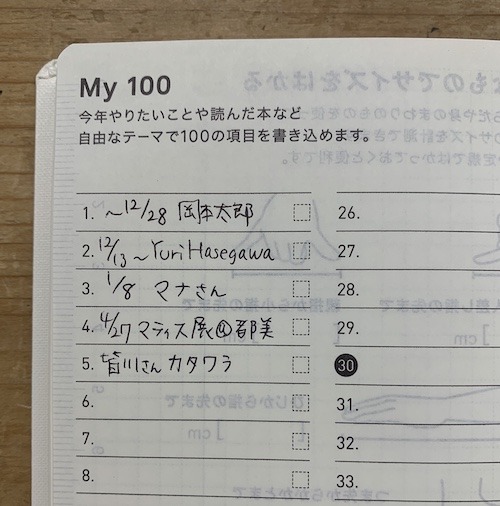 My 100
今年やりたいことや読んだ本など
自由なテーマで100の項目を書き込めます。
1. ～12/28 岡本太郎
2. 12/13～Yuri Hasegawa
3. 1/8 マナさん
4. 4/27 マティス展@都美
5. 皆川さん カタワラ
6.
7.
8.
26.
27.
28.
29.
30
31.
32.
33.